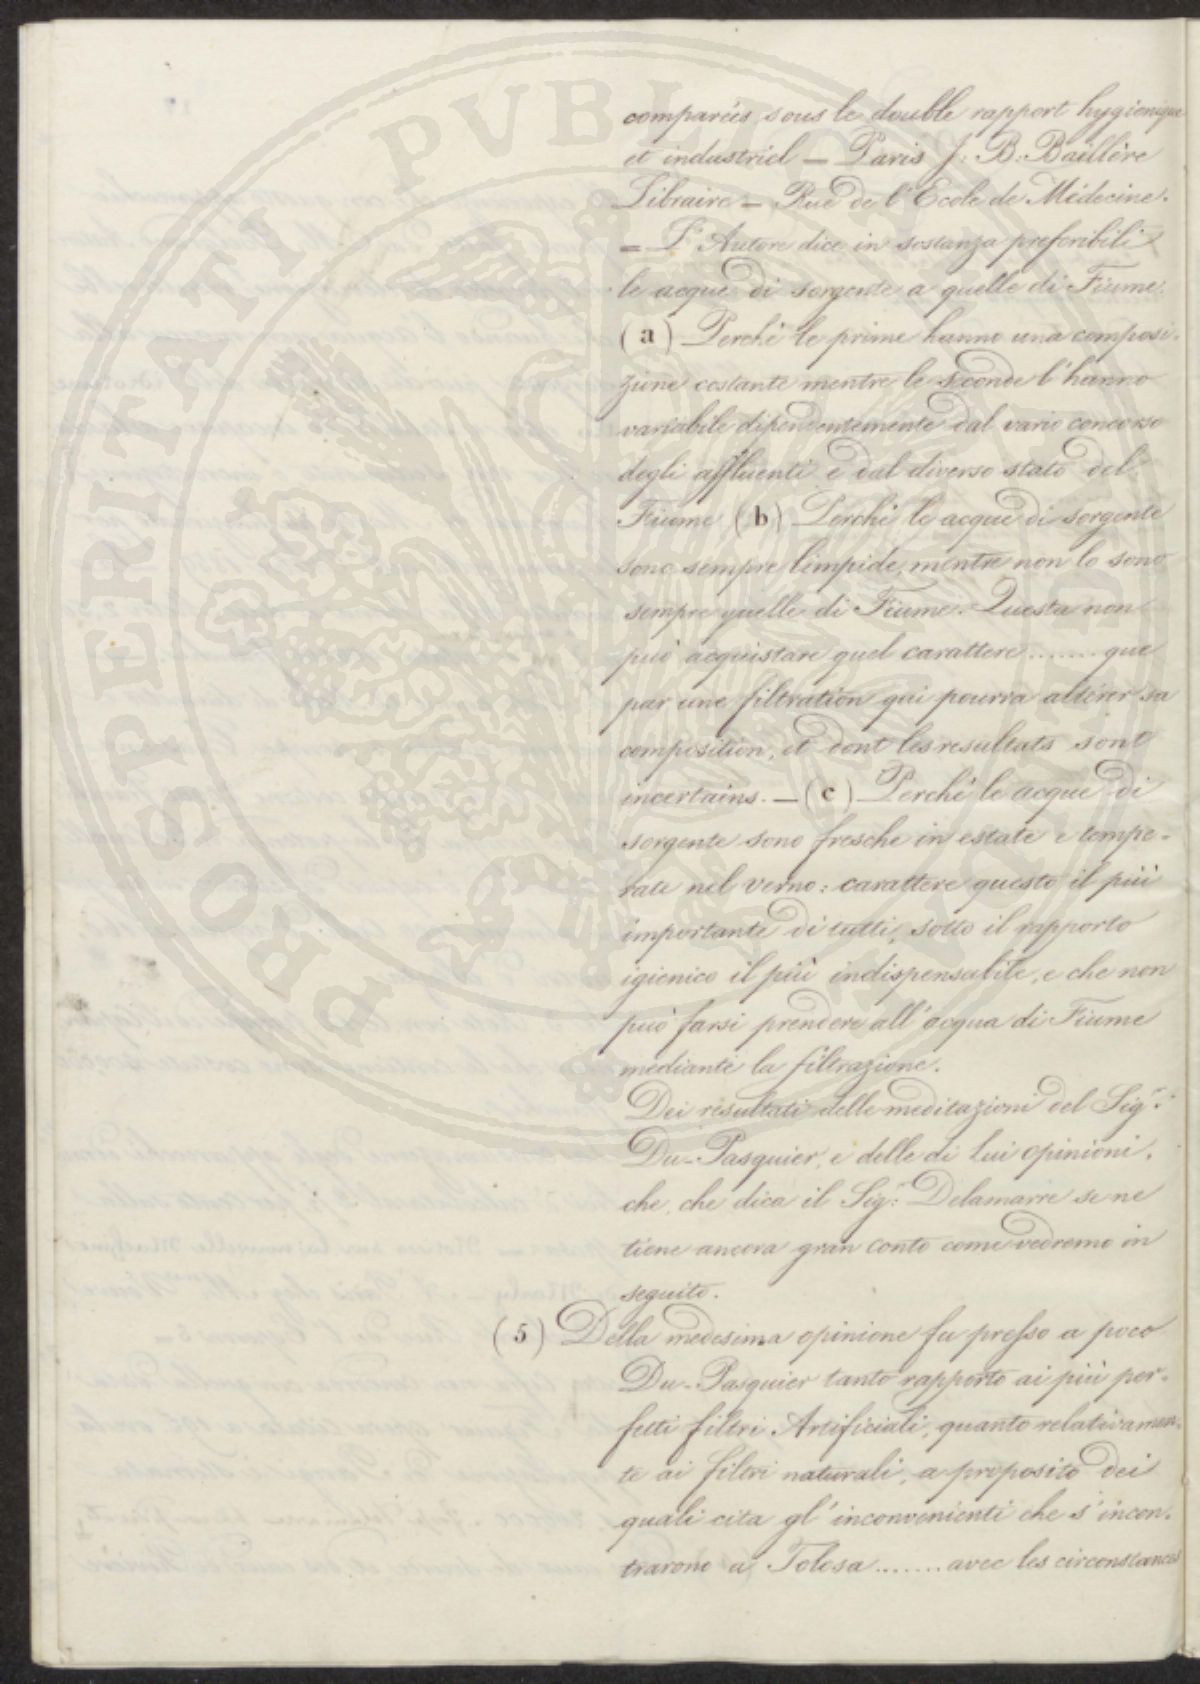 comparées sous le double rapport hygienique
et industriel — Paris J. B. Baillère
Libraire — Rue de l'Ecole de Médecine.
= L'Autore dice in sostanza preferibili
le acque di sorgente a quelle di Fiume.
(a) Perchè le prime hanno una composi-
zione costante mentre le seconde l'hanno
variabile dipendentemente dal vario concorso
degli affluenti e dal diverso stato del
Fiume (b) Perchè le acque di sorgente
sono sempre limpide, mentre non lo sono
sempre quelle di Fiume. Questa non
può acquistare quel carattere ....... que
par une filtration qui pourra altérer sa
composition, et dont les resultats sont
incertains. — (c) Perchè le acque di
sorgente sono fresche in estate e tempe-
rate nel verno: carattere questo il più
importante di tutti, sotto il rapporto
igienico il più indispensabile, e che non
può farsi prendere all'acqua di Fiume
mediante la filtrazione.
Dei risultati delle meditazioni del Sigr.
Du-Pasquier, e delle di Lui opinioni,
che, che dica il Sigr. Delamarre se ne
tiene ancora gran conto come vedremo in
seguito.
(5) Della medesima opinione fu presso a poco
Du-Pasquier tanto rapporto ai più per-
fetti filtri Artificiali, quanto relativamen-
te ai filtri naturali, a proposito dei
quali cita gl'inconvenienti che s'incon-
trarono a Tolosa ....... avec les circonstances
PROSPERITATI PVBLICAE